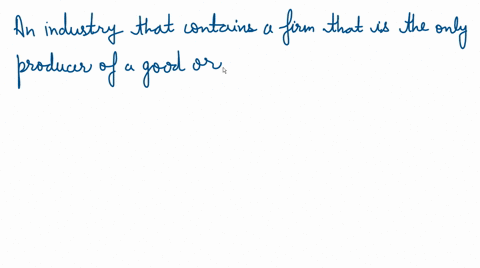 An industry that contains a firm that is the only
producer of a good or